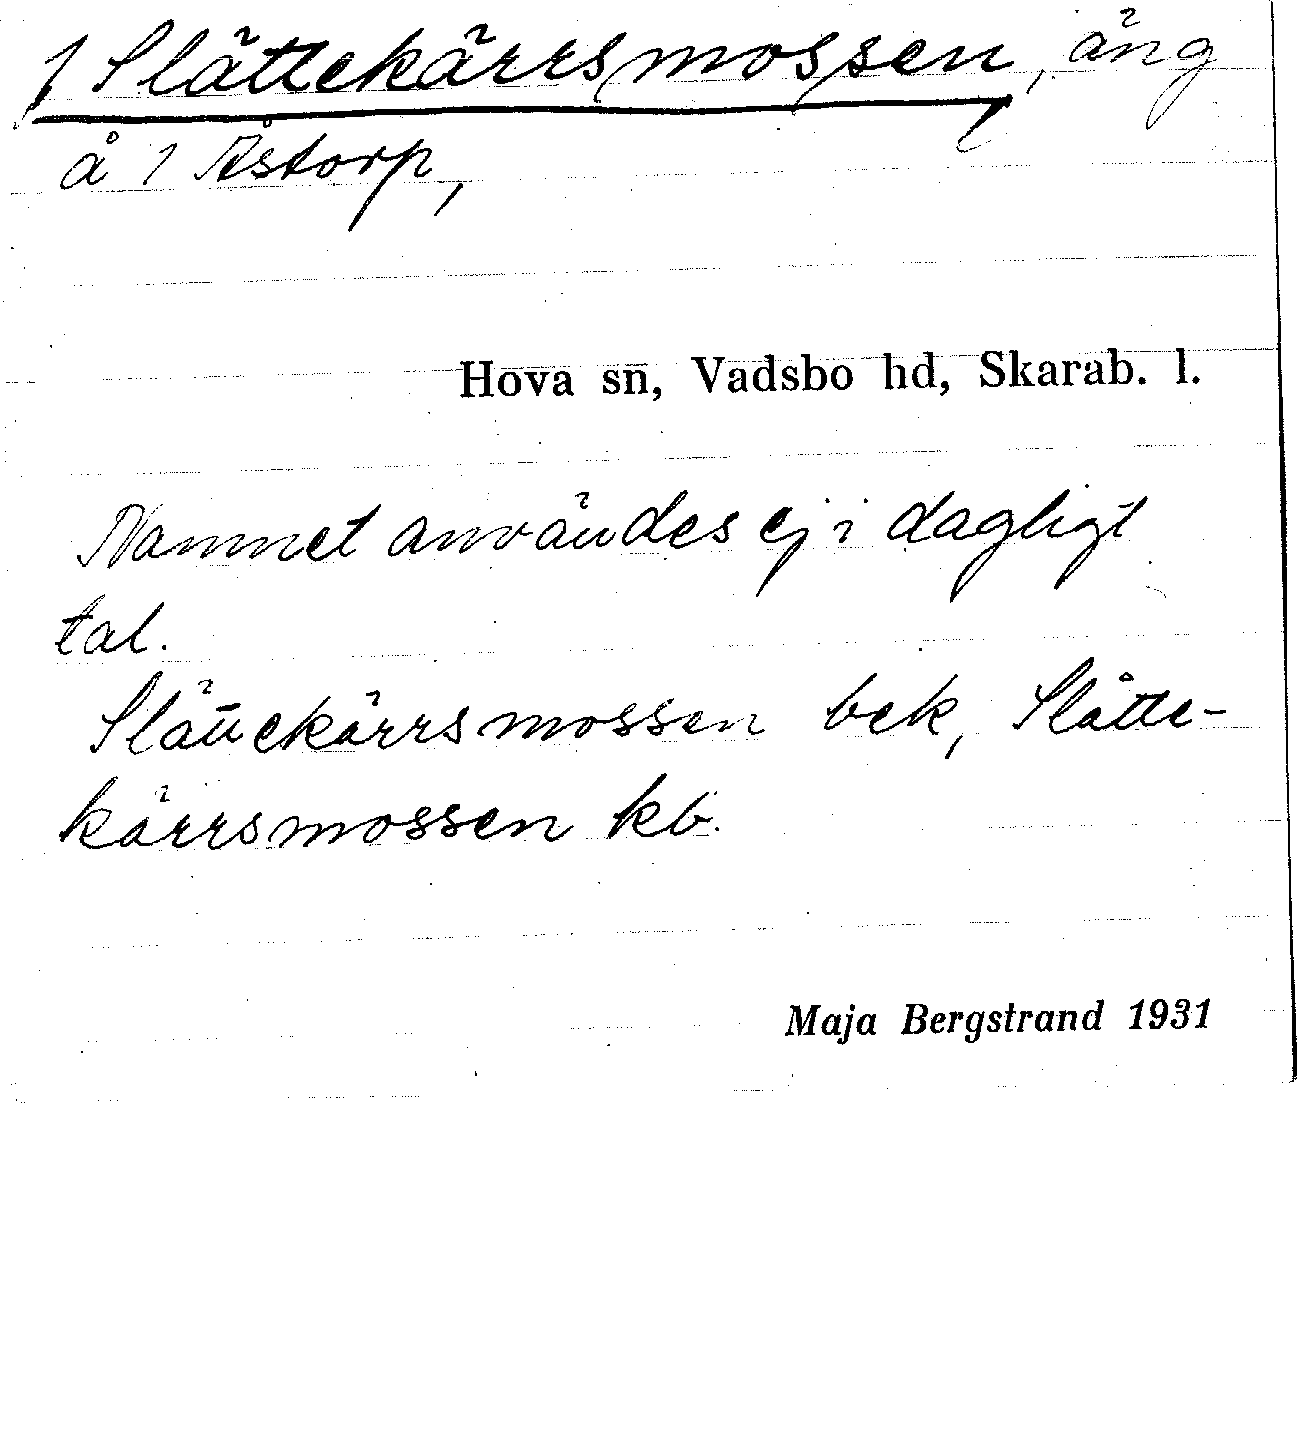 1 Slättekärrsmossen, äng
å 1 Åstorp,
Hova sn, Vadsbo hd, Skarab. l.
Namnet användes ej i dagligt
tal.
Slättekärrsmossen bek, Slåtte-
kärrsmossen kb.
Maja Bergstrand 1931